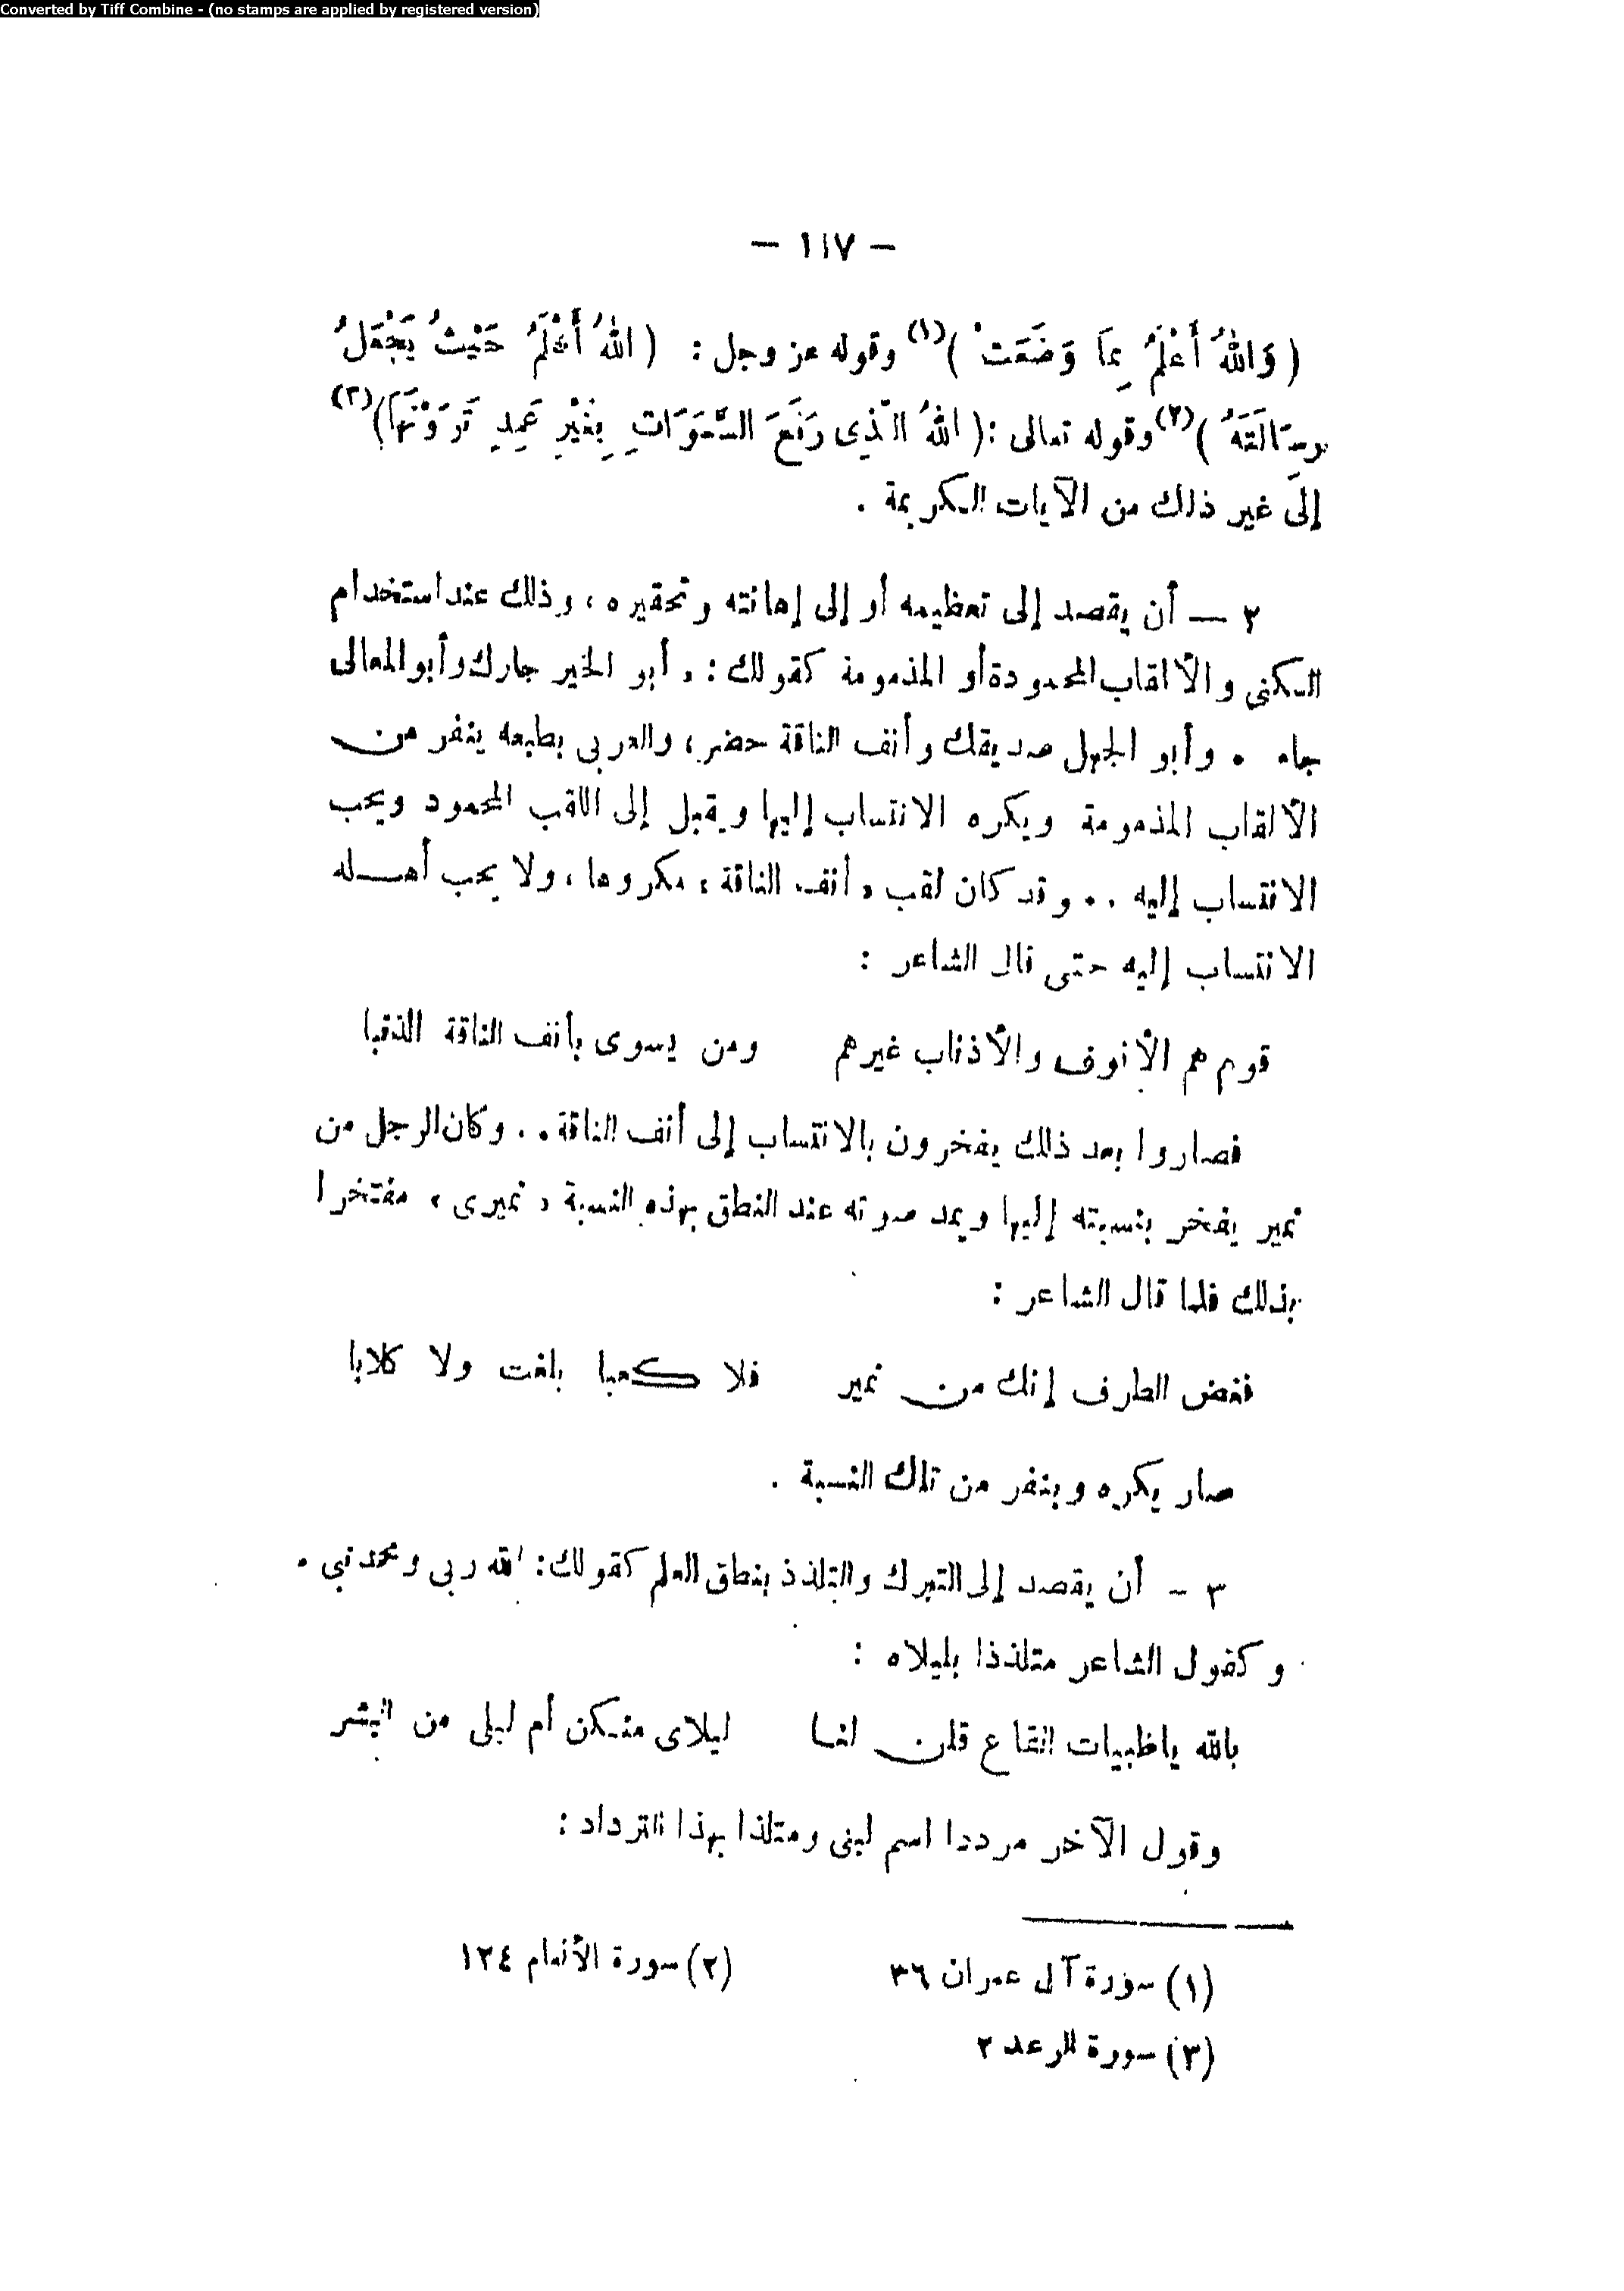 Converted by Tiff Combine - (no stamps are applied by registered version)
— ١١٧ —
( وَاللهُ أَعْلَمُ بِمَا وَضَعَتْ )(١) وقوله عز وجل : ( اللهُ أَعْلَمُ حَيْثُ يَجْعَلُ
رِسَالَتَهُ )(٢) وقوله تعالى : ( اللهُ الَّذِى رَفَعَ السَّمَوَاتِ بِغَيْرِ عَمِدٍ تَرَوْنَهَا )(٣)
إلى غير ذلك من الآيات الكريمة .
٢ — أن يقصد إلى تعظيمه أو إلى إهانته وتحقيره ، وذلك عند استخدام
الكنى والألقاب المحمودة أو المذمومة كقولك : « أبو الخير جارك وأبو المعالى
جاء . وأبو الجهل صديقك وأنف الناقة حضر ، والعربى بطبعه ينفر من
الألقاب المذمومة ويكره الانتساب إليها ويقبل إلى اللقب المحمود ويحب
الانتساب إليه . . وقد كان لقب « أنف الناقة » مكروها ، ولا يحب أهله
الانتساب إليه حتى قال الشاعر :
قوم هم الأنوف والأذناب غيرهم ومن يسوى بأنف الناقة الذنبا
فصاروا بعد ذلك يفخرون بالانتساب إلى أنف الناقة . . وكان الرجل من
نمير يفخر بنسبته إليها ويمد صوته عند النطق بهذه النسبة « نميرى » مفتخرا
بذلك فلما قال الشاعر :
فغض الطرف إنك من نمير فلا كعبا بلغت ولا كلابا
صار يكره وينفر من تلك النسبة .
٣ - أن يقصد إلى التبرك والتلذذ بنطق العلم كقولك : الله ربى ومحمد نبي .
وكقول الشاعر متلذذا بليلاه :
بالله ياظبيات القاع قلن لنا ليلاى منكن أم ليلى من البشر
وقول الآخر مرددا اسم لبنى ومتلذا بهذا الترداد :
(١) سورة آل عمران ٣٦ (٢) سورة الأنعام ١٢٤
(٣) سورة الرعد ٢